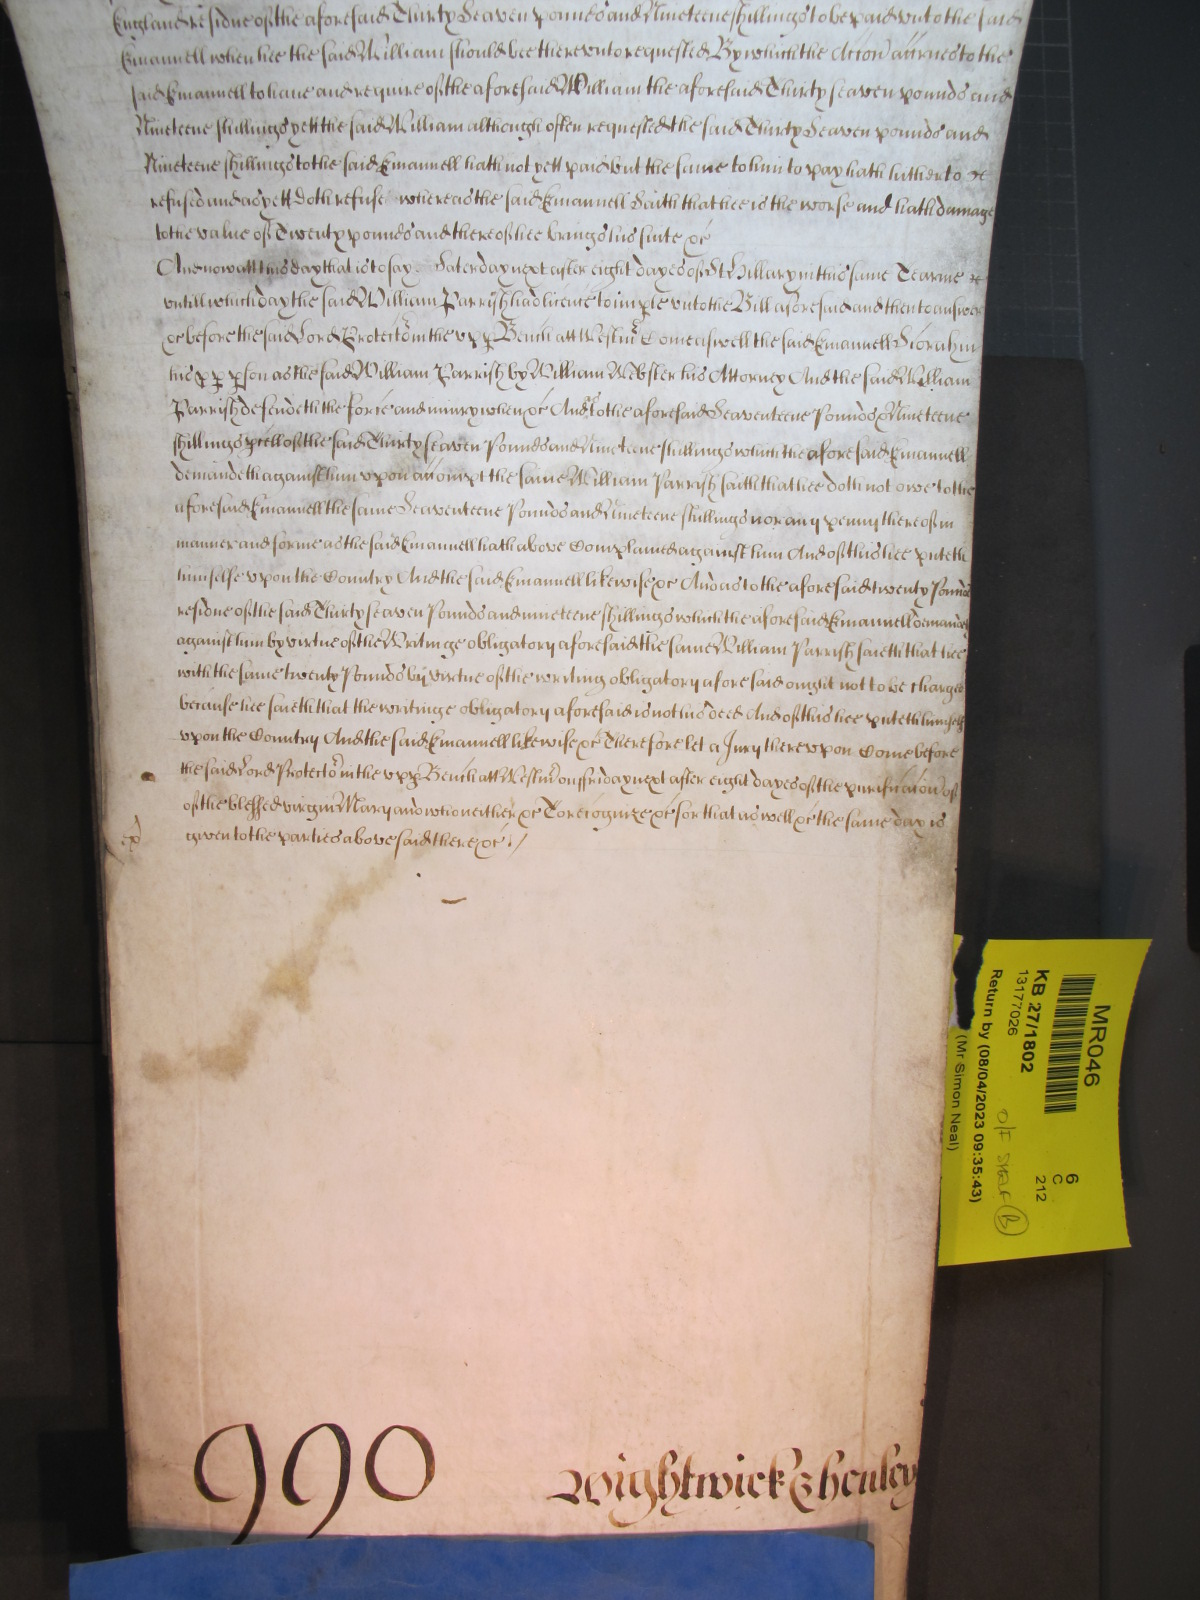 England residue of the aforesaid Thirty Seaven pounds and Nineteene shillings to be paid unto the said
Emannell when hee the said William should bee thereunto requested By which the Accon accrues to the
said Emannell to have and require of the aforesaid William the aforesaid Thirty seaven pounds and
Nineteene shillings yett the said William although often requested the said Thirty Seaven pounds and
Nineteene shillings to the said Emannell hath not yett paid but the same to him to pay hath hitherto
refused and as yett doth refuse whereas the said Emannell Saith that hee is the worse and hath damage
to the value of Twenty pounds and thereof hee brings his suite &c
And now att this day that is to say Saterday next after eight dayes of St Hillary in this same Tearme
untill which day the said William Parrish had licence to imple unto the Bill aforesaid and then to answer
&c before the said Lord Protector in the upp Bench att Westm Come aswell the said Emannell in
his pp pson as the said William Parrish by William Webster his Attorney And the said William
Parrish defendeth the force and iniury when &c And to the aforesaid Seaventeene Pounds & Nineteene
shillings pcell of the said Thirty seaven Pounds and Nineteene shillings which the aforesaid Emannell
demandeth against him upon accompt the same William Parrish saith that hee doth not owe to the
aforesaid Emannell the same Seaventeene Pounds and Nineteene shillings nor any penny thereof in
manner and forme as the said Emannell hath above Complained against him And of this hee putteth
himselfe upon the Country And the said Emannell likewise &c And as to the aforesaid twenty Pounds
residue of the said Thirty seaven Pounds and nineteene shillings which the aforesaid Emannell demandeth
against him by virtue of the Writinge obligatory aforesaid the same William Parrish saieth that hee
with the same twenty Pounds by virtue of the writing obligatory aforesaid ought not to be charged
because hee saieth that the writinge obligatory aforesaid is not his deed And of this hee putteth himself
upon the Country And the said Emannell likewise &c Therefore let a Jury thereupon Come before
the said Lord Protector in the upp Bench att Westm on ffriday next after eight dayes of the purificacion of
of the blessed virgin Mary and who neither &c To recognize &c for that aswell &c the same day is
given to the parties above said there &c
990
Wightwick & henley
MR046
KB 27/1802
13177026
Return by (08/04/2023 09:35:43)
(Mr Simon Neal)
6
C
212
O/F SHELF B